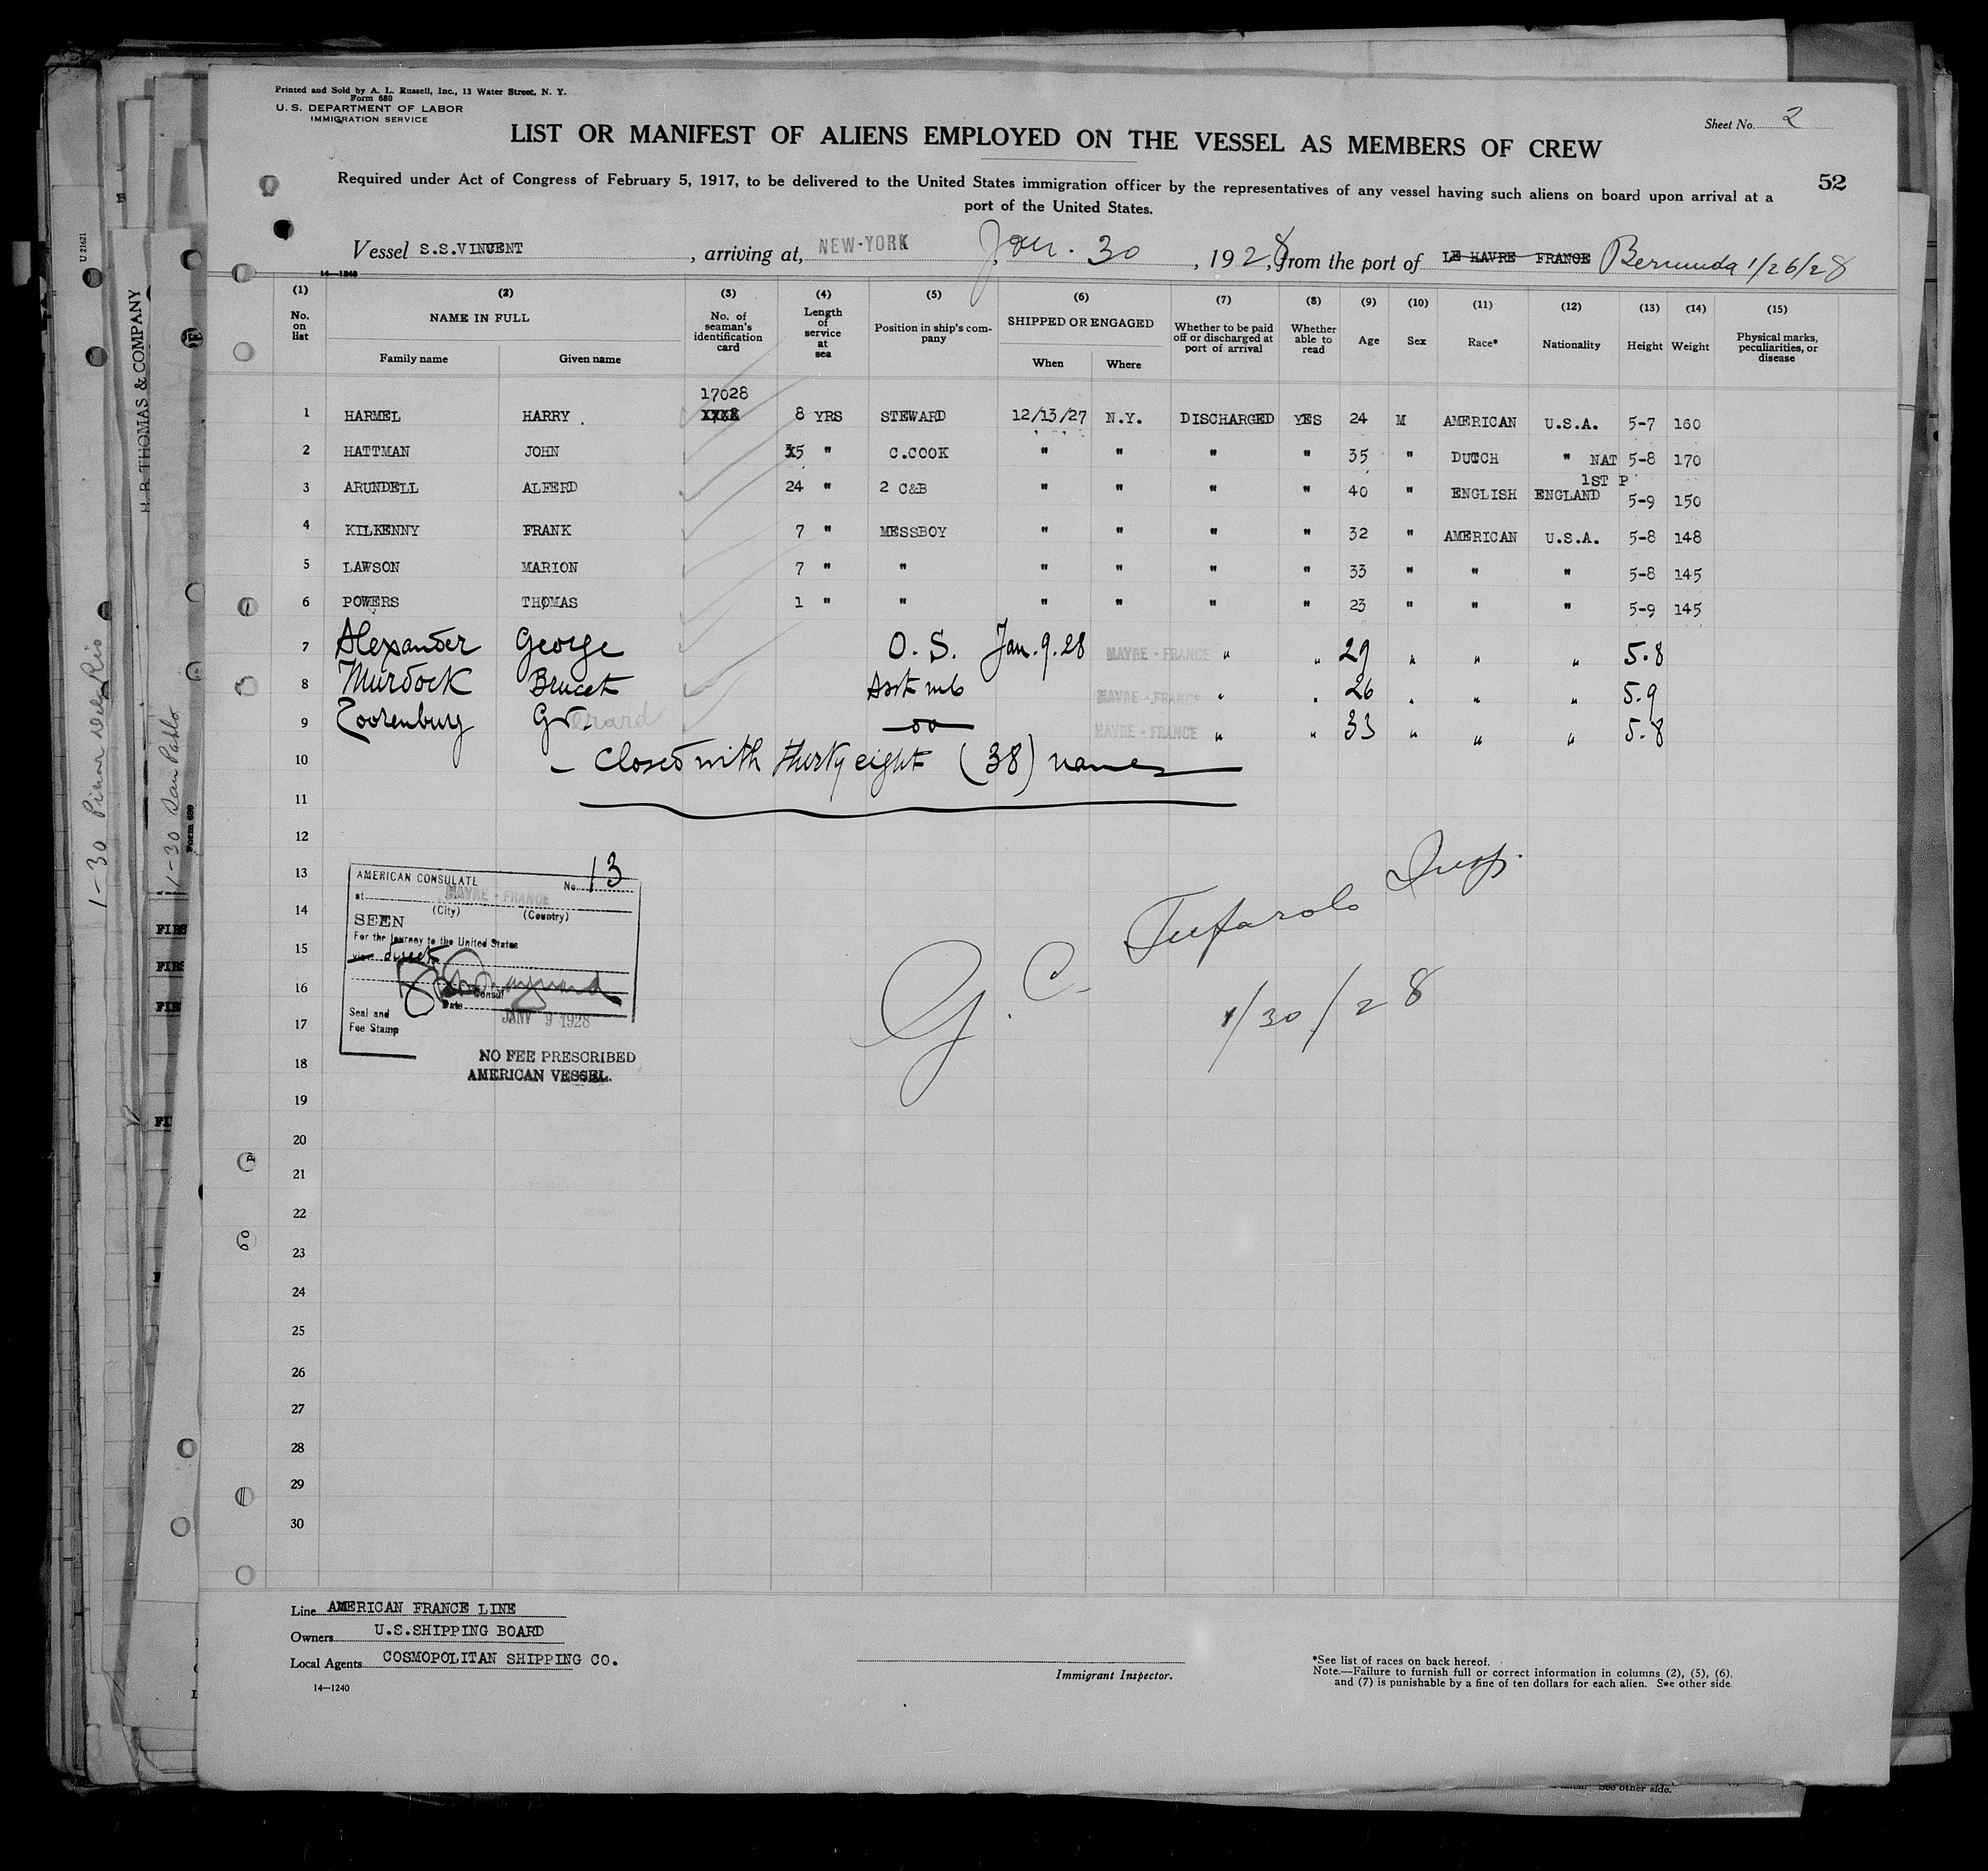 Printed and Sold by A. L. Russell, Inc., 13 Water Street, N. Y.
Form 680
U. S. DEPARTMENT OF LABOR
IMMIGRATION SERVICE
Sheet No. 2
LIST OR MANIFEST OF ALIENS EMPLOYED ON THE VESSEL AS MEMBERS OF CREW
52
Required under Act of Congress of February 5, 1917, to be delivered to the United States immigration officer by the representatives of any vessel having such aliens on board upon arrival at a
port of the United States.
Vessel S.S.VINCENT, arriving at, NEW-YORK Jan. 30, 1928, from the port of LE HAVRE FRANCE Bermuda 1/26/28
14—1240
(1) (2) (3) (4) (5) (6) (7) (8) (9) (10) (11) (12) (13) (14) (15)
No. on list NAME IN FULL No. of seaman's identification card Length of service at sea Position in ship's company SHIPPED OR ENGAGED Whether to be paid off or discharged at port of arrival Whether able to read Age Sex Race* Nationality Height Weight Physical marks, peculiarities, or disease
Family name Given name When Where
17028
1 HARMEL HARRY 8 YRS STEWARD 12/13/27 N.Y. DISCHARGED YES 24 M AMERICAN U.S.A. 5-7 160
2 HATTMAN JOHN 5 " C.COOK " " " " 35 " DUTCH " NAT 5-8 170
1ST P
3 ARUNDELL ALFERD 24 " 2 C&B " " " " 40 " ENGLISH ENGLAND 5-9 150
4 KILKENNY FRANK 7 " MESSBOY " " " " 32 " AMERICAN U.S.A. 5-8 148
5 LAWSON MARION 7 " " " " " " 33 " " " 5-8 145
6 POWERS THOMAS 1 " " " " " " 23 " " " 5-9 145
7 Alexander George O. S. Jan. 9. 28 HAVRE - FRANCE " " 29 " " " 5.8
8 Murdock Asst HAVRE - FRANCE " " 26 " " " 5.9
9 HAVRE - FRANCE " " 33 " " " 5.8
10 - Closed with thirty eight (38) names
11
12
13
14
15
16
17
18
19
20
21
22
23
24
25
26
27
28
29
30
AMERICAN CONSULATE No. 13
at HAVRE - FRANCE
(City) (Country)
SEEN
For the journey to the United States
via direct
Consul
Date JANV 9 1928
Seal and
Fee Stamp
NO FEE PRESCRIBED
AMERICAN VESSEL.
G. C. Tufarolo Insp.
1/30/28
Line AMERICAN FRANCE LINE
Owners U.S.SHIPPING BOARD
Local Agents COSMOPOLITAN SHIPPING CO.
14—1240
Immigrant Inspector.
*See list of races on back hereof.
Note.—Failure to furnish full or correct information in columns (2), (5), (6),
and (7) is punishable by a fine of ten dollars for each alien. See other side.
See other side.
U 21621
H. B. THOMAS & COMPANY
1-30 Pinar del Rio
1-30 San Pablo
Form 689